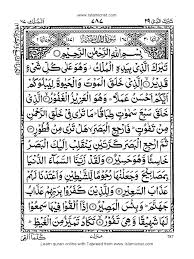 www.islamicnet.com
تبرك الذي ٢٩
٧٨٧
الملك ٦٧
بِسْمِ اللهِ الرَّحْمٰنِ الرَّحِيْمِ
تَبٰرَكَ الَّذِيْ بِيَدِهِ الْمُلْكُ وَهُوَ عَلٰى كُلِّ شَيْءٍ
قَدِيْرُ الَّذِيْ خَلَقَ الْمَوْتَ وَالْحَيٰوةَ لِيَبْلُوَكُمْ
اَيُّكُمْ اَحْسَنُ عَمَلًا وَهُوَ الْعَزِيْزُ الْغَفُوْرُ الَّذِيْ
خَلَقَ سَبْعَ سَمٰوٰتٍ طِبَاقًا مَا تَرٰى فِيْ خَلْقِ الرَّحْمٰنِ
مِنْ تَفٰوُتٍ فَارْجِعِ الْبَصَرَ هَلْ تَرٰى مِنْ فُطُوْرٍ
ثُمَّ ارْجِعِ الْبَصَرَ كَرَّتَيْنِ يَنْقَلِبْ اِلَيْكَ الْبَصَرُ
خَاسِئًا وَّهُوَ حَسِيْرٌ وَلَقَدْ زَيَّنَّا السَّمَآءَ الدُّنْيَا
بِمَصَابِيْحَ وَجَعَلْنٰهَا رُجُوْمًا لِّلشَّيٰطِيْنِ وَاَعْتَدْنَا لَهُمْ
عَذَابَ السَّعِيْرِ وَلِلَّذِيْنَ كَفَرُوْا بِرَبِّهِمْ عَذَابُ
جَهَنَّمَ وَبِئْسَ الْمَصِيْرُ اِذَآ اُلْقُوْا فِيْهَا سَمِعُوْا لَهَا
شَهِيْقًا وَّهِيَ تَفُوْرُ تَكَادُ تَمَيَّزُ مِنَ الْغَيْظِ
Learn quran online with Tajweed from www.islamicnet.com